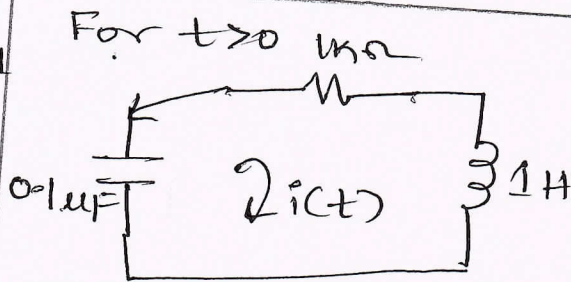 For t>0
1KΩ
0.1μF
i(t)
1H